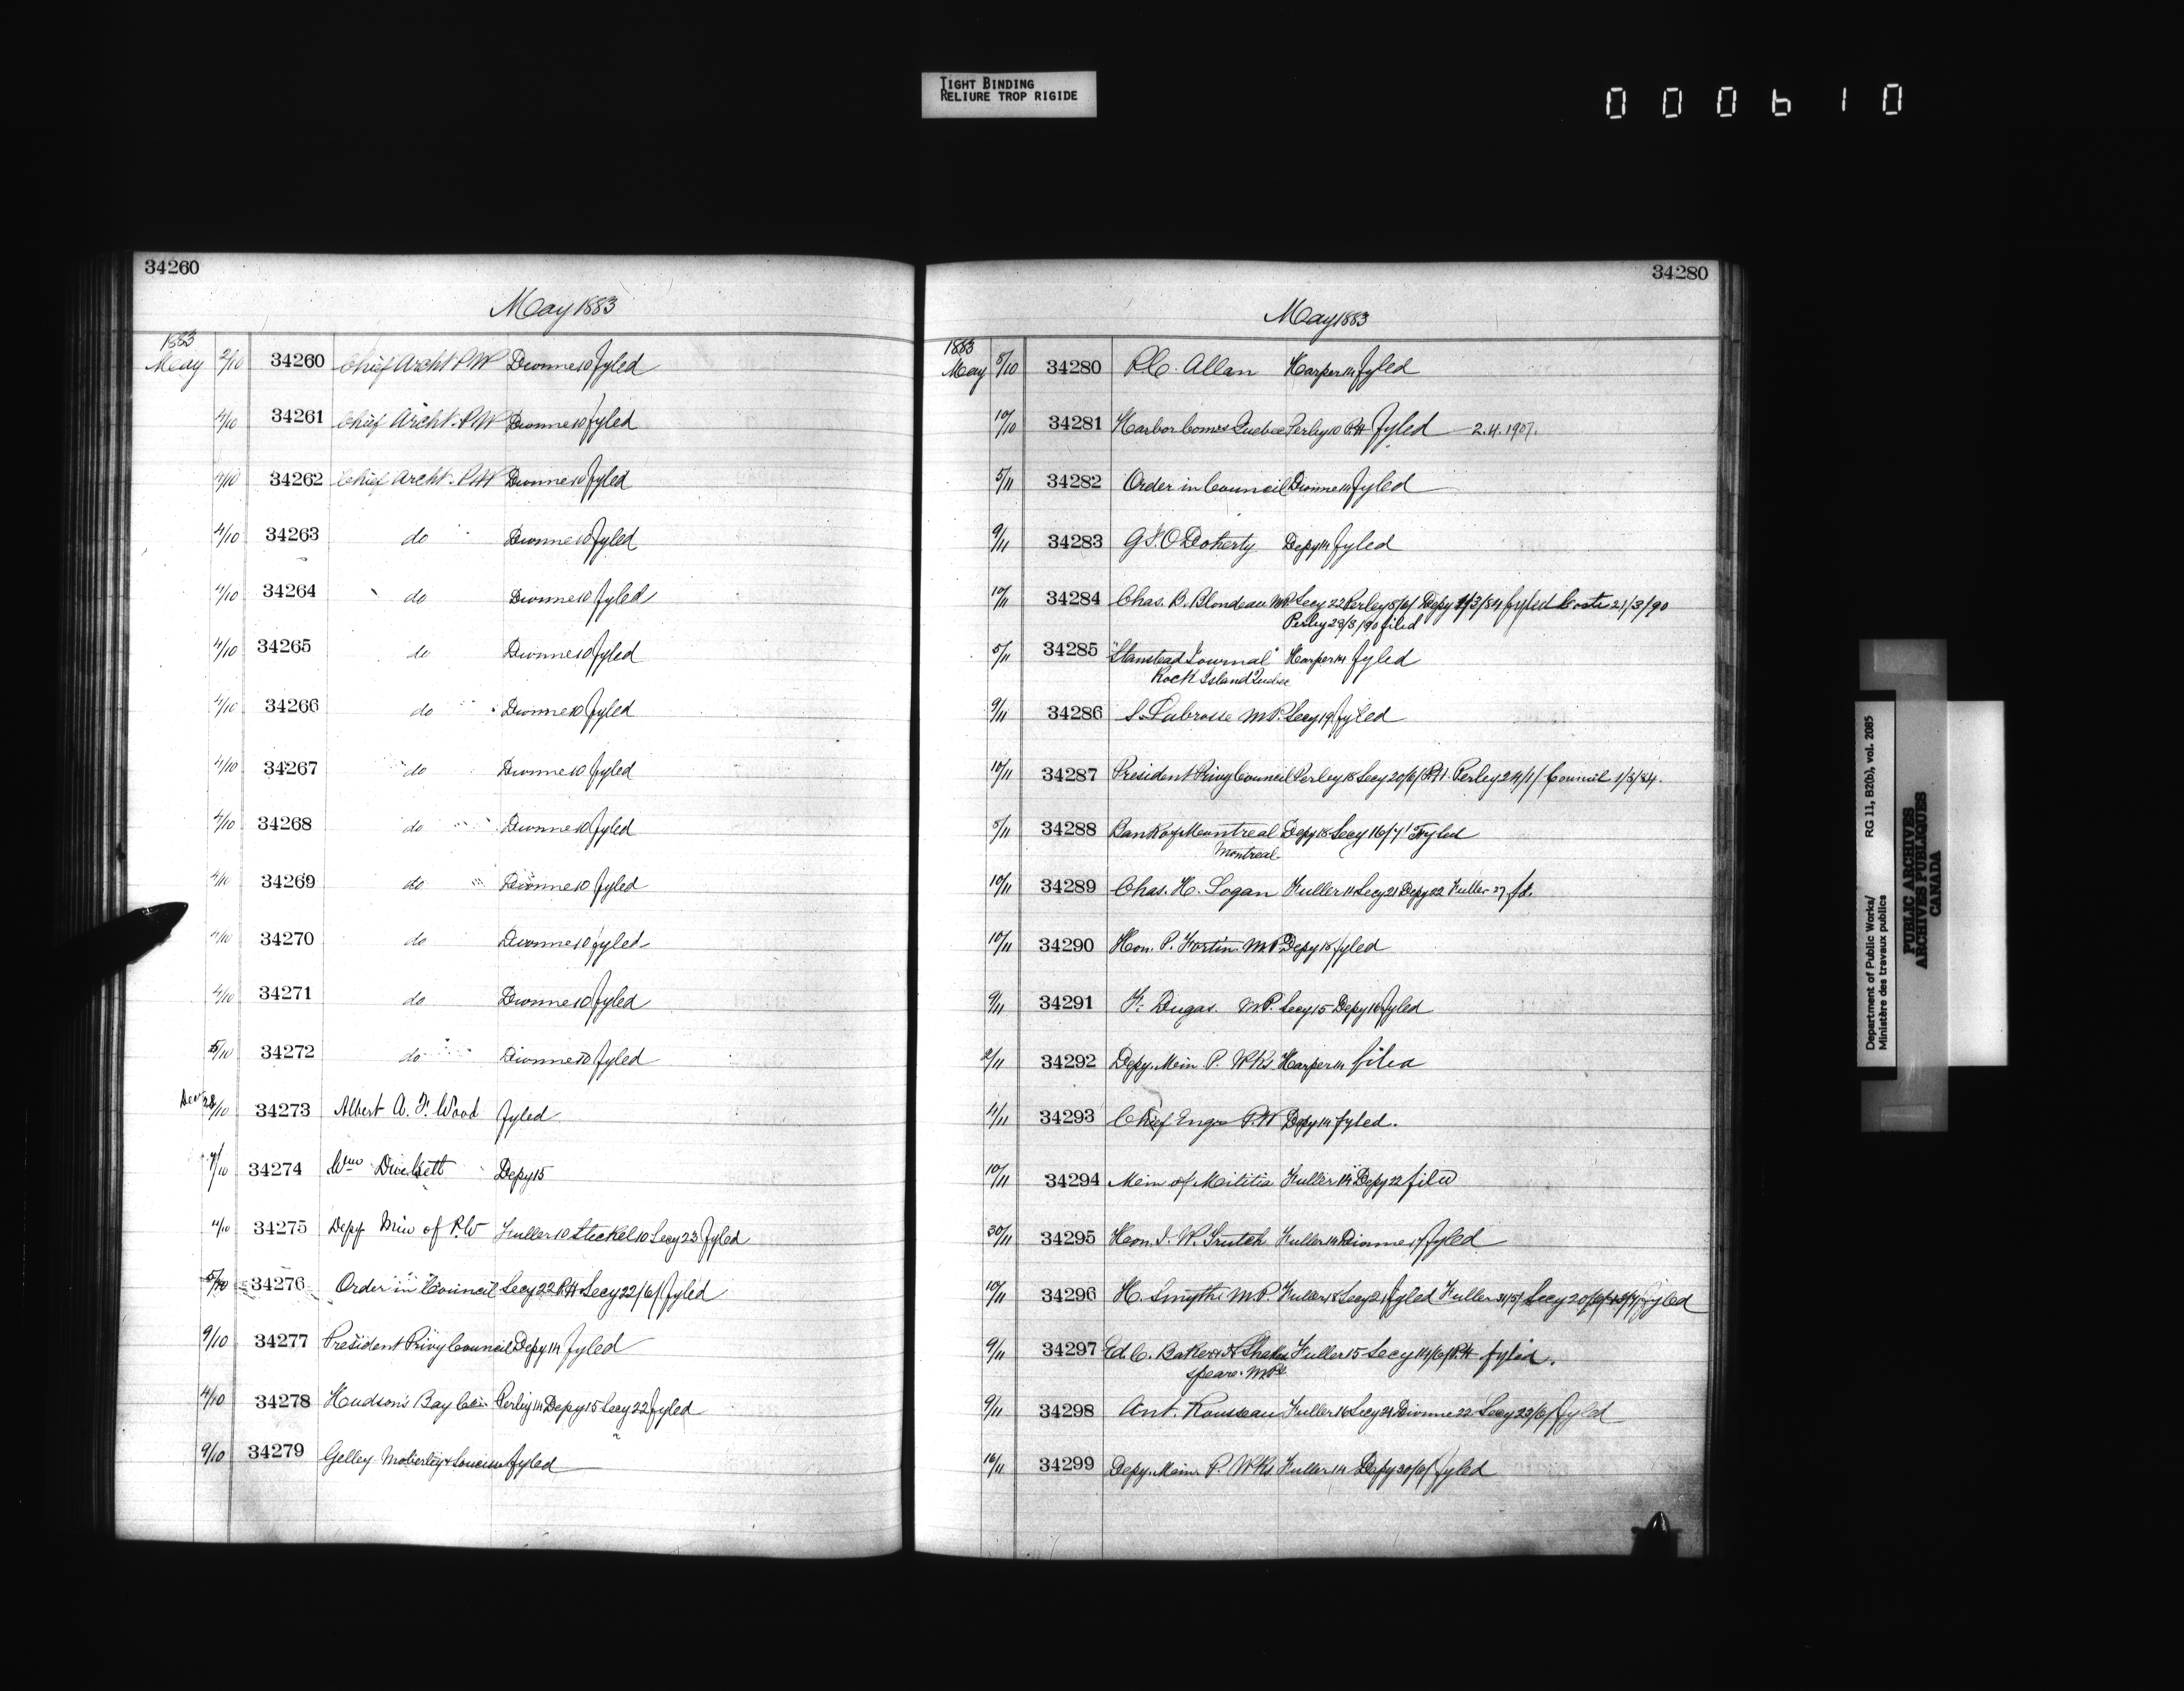 TIGHT BINDING
RELIURE TROP RIGIDE
000610
34260
May 1883
1883
May 2/10 34260 Chief Archt P.W Dionne 10 fyled
4/10 34261 Chief Archt. P.W Dionne 10 fyled
4/10 34262 Chief Archt. P.W Dionne 10 fyled
4/10 34263 do Dionne 10 fyled
4/10 34264 do Dionne 10 fyled
4/10 34265 do Dionne 10 fyled
4/10 34266 do Dionne 10 fyled
4/10 34267 do Dionne 10 fyled
4/10 34268 do Dionne 10 fyled
4/10 34269 do Dionne 10 fyled
4/10 34270 do Dionne 10 fyled
4/10 34271 do Dionne 10 fyled
5/10 34272 do Dionne 10 fyled
28/10 34273 Albert A. F. Wood fyled
7/10 34274 Wm Depy 15
4/10 34275 Depy Min of P.W Fuller 10 Steckel 10 Secy 23 fyled
5/10 34276 Order in Council Secy 22 P.H Secy 22/6/ fyled
9/10 34277 President Privy Council Depy 14 fyled
4/10 34278 Hudson's Bay Perley 14 Depy 15 Secy 22 fyled
9/10 34279 Gelley Moberley & fyled
34280
May 1883
1883
May 5/10 34280 P.C. Allan Harper 14 fyled
10/10 34281 Harbor Comrs Quebec Perley 10 P.H fyled 2.4.1907.
5/11 34282 Order in Council Dionne 14 fyled
9/11 34283 G J. O'Doherty Depy 14 fyled
10/11 34284 Chas. B. Blondeau MP. Secy 22 Perley 5/6/ Depy /3/84 fyled Coste 21/3/90
Perley 28/3/90 filed
5/11 34285 "Stanstead Journal" Harper 14 fyled
Rock Island Quebec
9/11 34286 S. Labrosse M.P. Secy 19 fyled
10/11 34287 President Privy Council Perley 18 Secy 20/6/ P.H. Perley 24/1/ Council 1/3/84.
5/11 34288 Bank of Montreal Depy 18 Secy 16/7/ Fyled
Montreal
10/11 34289 Chas. H. Logan Fuller 14 Secy 21 Depy 22 Fuller 27 fd.
10/11 34290 Hon. P. Fortin M.P. Depy 18 fyled
9/11 34291 F. Dugas. M.P. Secy 15 Depy 16 fyled
2/11 34292 Depy. Min. P. Wks. Harper 14 filed
4/11 34293 Chief Engr P.W Depy 14 fyled.
10/11 34294 Min of Militia Fuller 14 Depy 22 filed
30/11 34295 Hon. J. W. Trutch Fuller 14 Dionne 17 fyled
10/11 34296 H. Smythe M.P. Fuller 18 Secy 21 fyled Fuller 31/5/ Secy 20/6/ fyled
9/11 34297 Ed. C. Baker & Shakes Fuller 15 Secy 14/6/ P.H fyled.
speare. MPs
9/11 34298 Ant. Rousseau Fuller 16 Secy 21 Dionne 22 Secy 22/6/ fyled
16/11 34299 Depy. Min. P. Wks. Fuller 14 Depy 30/6/ fyled
Department of Public Works/ RG 11, B2(b), vol. 2085
Ministère des travaux publics
PUBLIC ARCHIVES
ARCHIVES PUBLIQUES
CANADA